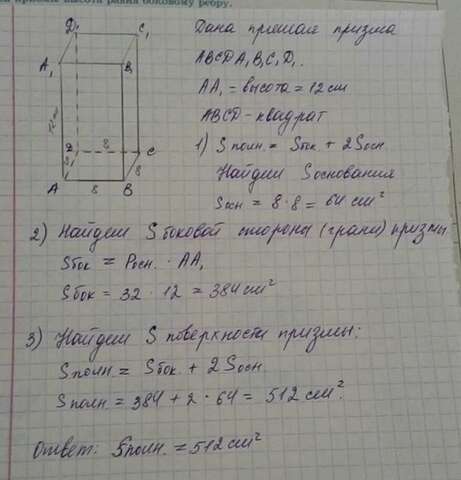 призме высота равна боковому ребру.
Дана прямая призма
ABCDA₁B₁C₁D₁.
AA₁ = высота = 12 см
ABCD - квадрат
1) Sполн. = Sбок + 2Sосн
Найдем Sоснования
Sосн = 8 · 8 = 64 см²
D₁
C₁
A₁
B₁
12 см
D
8
C
8
8
A
8
B
2) Найдем Sбоковой стороны (грани) призмы
Sбок = Pосн. · AA₁
Sбок = 32 · 12 = 384 см²
3) Найдем S поверхности призмы:
Sполн. = Sбок. + 2Sосн.
Sполн. = 384 + 2 · 64 = 512 см².
Ответ: Sполн. = 512 см²